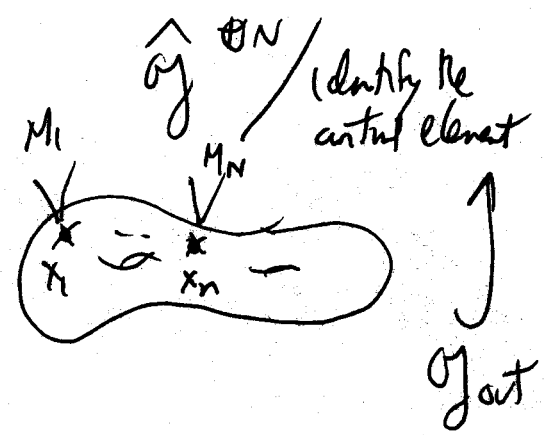 ĝ^{⊕N} / identify the
central element
M₁ M_N
x₁ -- xₙ
g_out